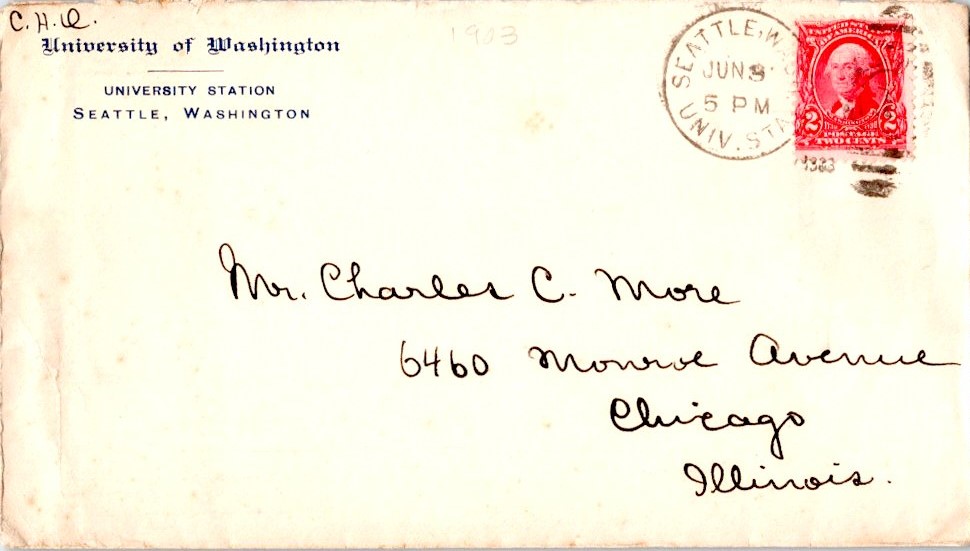 C. H. O.
1903
University of Washington
UNIVERSITY STATION
SEATTLE, WASHINGTON
SEATTLE, WASH.
JUN 3
5 PM
UNIV. STA.
UNITED STATES
OF AMERICA
2 2
POSTAGE
TWO CENTS
Mr. Charles C. More
6460 Monroe Avenue
Chicago
Illinois.